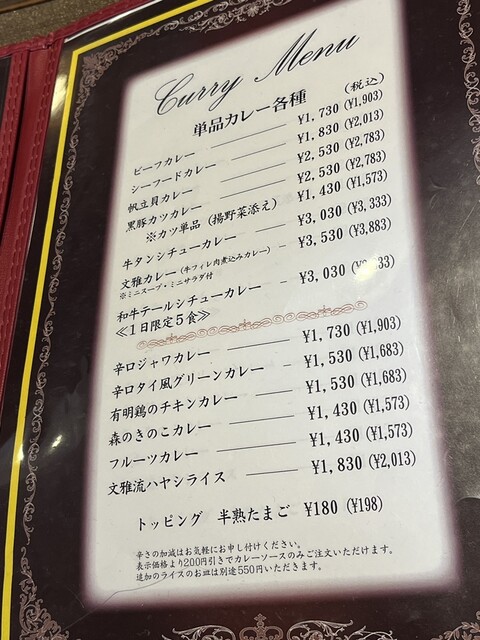 Curry Menu
単品カレー各種 (税込)
ビーフカレー ¥1,730 (¥1,903)
シーフードカレー ¥1,830 (¥2,013)
帆立貝カレー ¥2,530 (¥2,783)
黒豚カツカレー ¥2,530 (¥2,783)
※カツ単品 (揚野菜添え) ¥1,430 (¥1,573)
牛タンシチューカレー ¥3,030 (¥3,333)
文雅カレー (牛フィレ肉煮込みカレー) ¥3,530 (¥3,883)
※ミニスープ・ミニサラダ付
和牛テールシチューカレー ¥3,030
≪1日限定5食≫
辛口ジャワカレー ¥1,730 (¥1,903)
辛口タイ風グリーンカレー ¥1,530 (¥1,683)
有明鶏のチキンカレー ¥1,530 (¥1,683)
森のきのこカレー ¥1,430 (¥1,573)
フルーツカレー ¥1,430 (¥1,573)
文雅流ハヤシライス ¥1,830 (¥2,013)
トッピング 半熟たまご ¥180 (¥198)
辛さの加減はお気軽にお申し付けください。
表示価格より200円引きでカレーソースのみご注文いただけます。
追加のライスのお皿は別途550円いただきます。